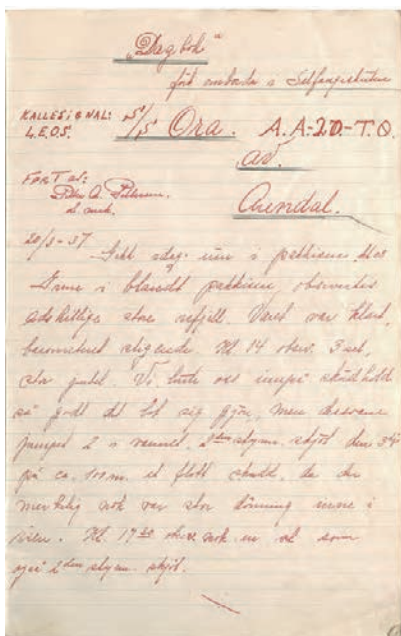 „Dagbok"
ført ombord i Selfangerskuten
KALLESIGNAL:
L.E.O.S.
S/S Ora. A.A-20-T.O.
av.
Arendal.
FØRT av:
20/3-37. Sekk idag inn i pakkisens
inne i blandt pakkisen, observertes
adskillige store isfjell. Været var klart,
barometeret stigende. Kl. 14 obser. 3 sel,
stor gudel. Vi lurte oss innpå skuddhold
så godt det lot sig gjøre, men desverre
jumpet 2 i vannet. 2den styrm. skjøt den 3dje
på ca. 100 m. et flott skudd, da der
merkelig nok var stor dønning inne i
isen. Kl. 17 nok en sel som
2den styrm. skjøt.